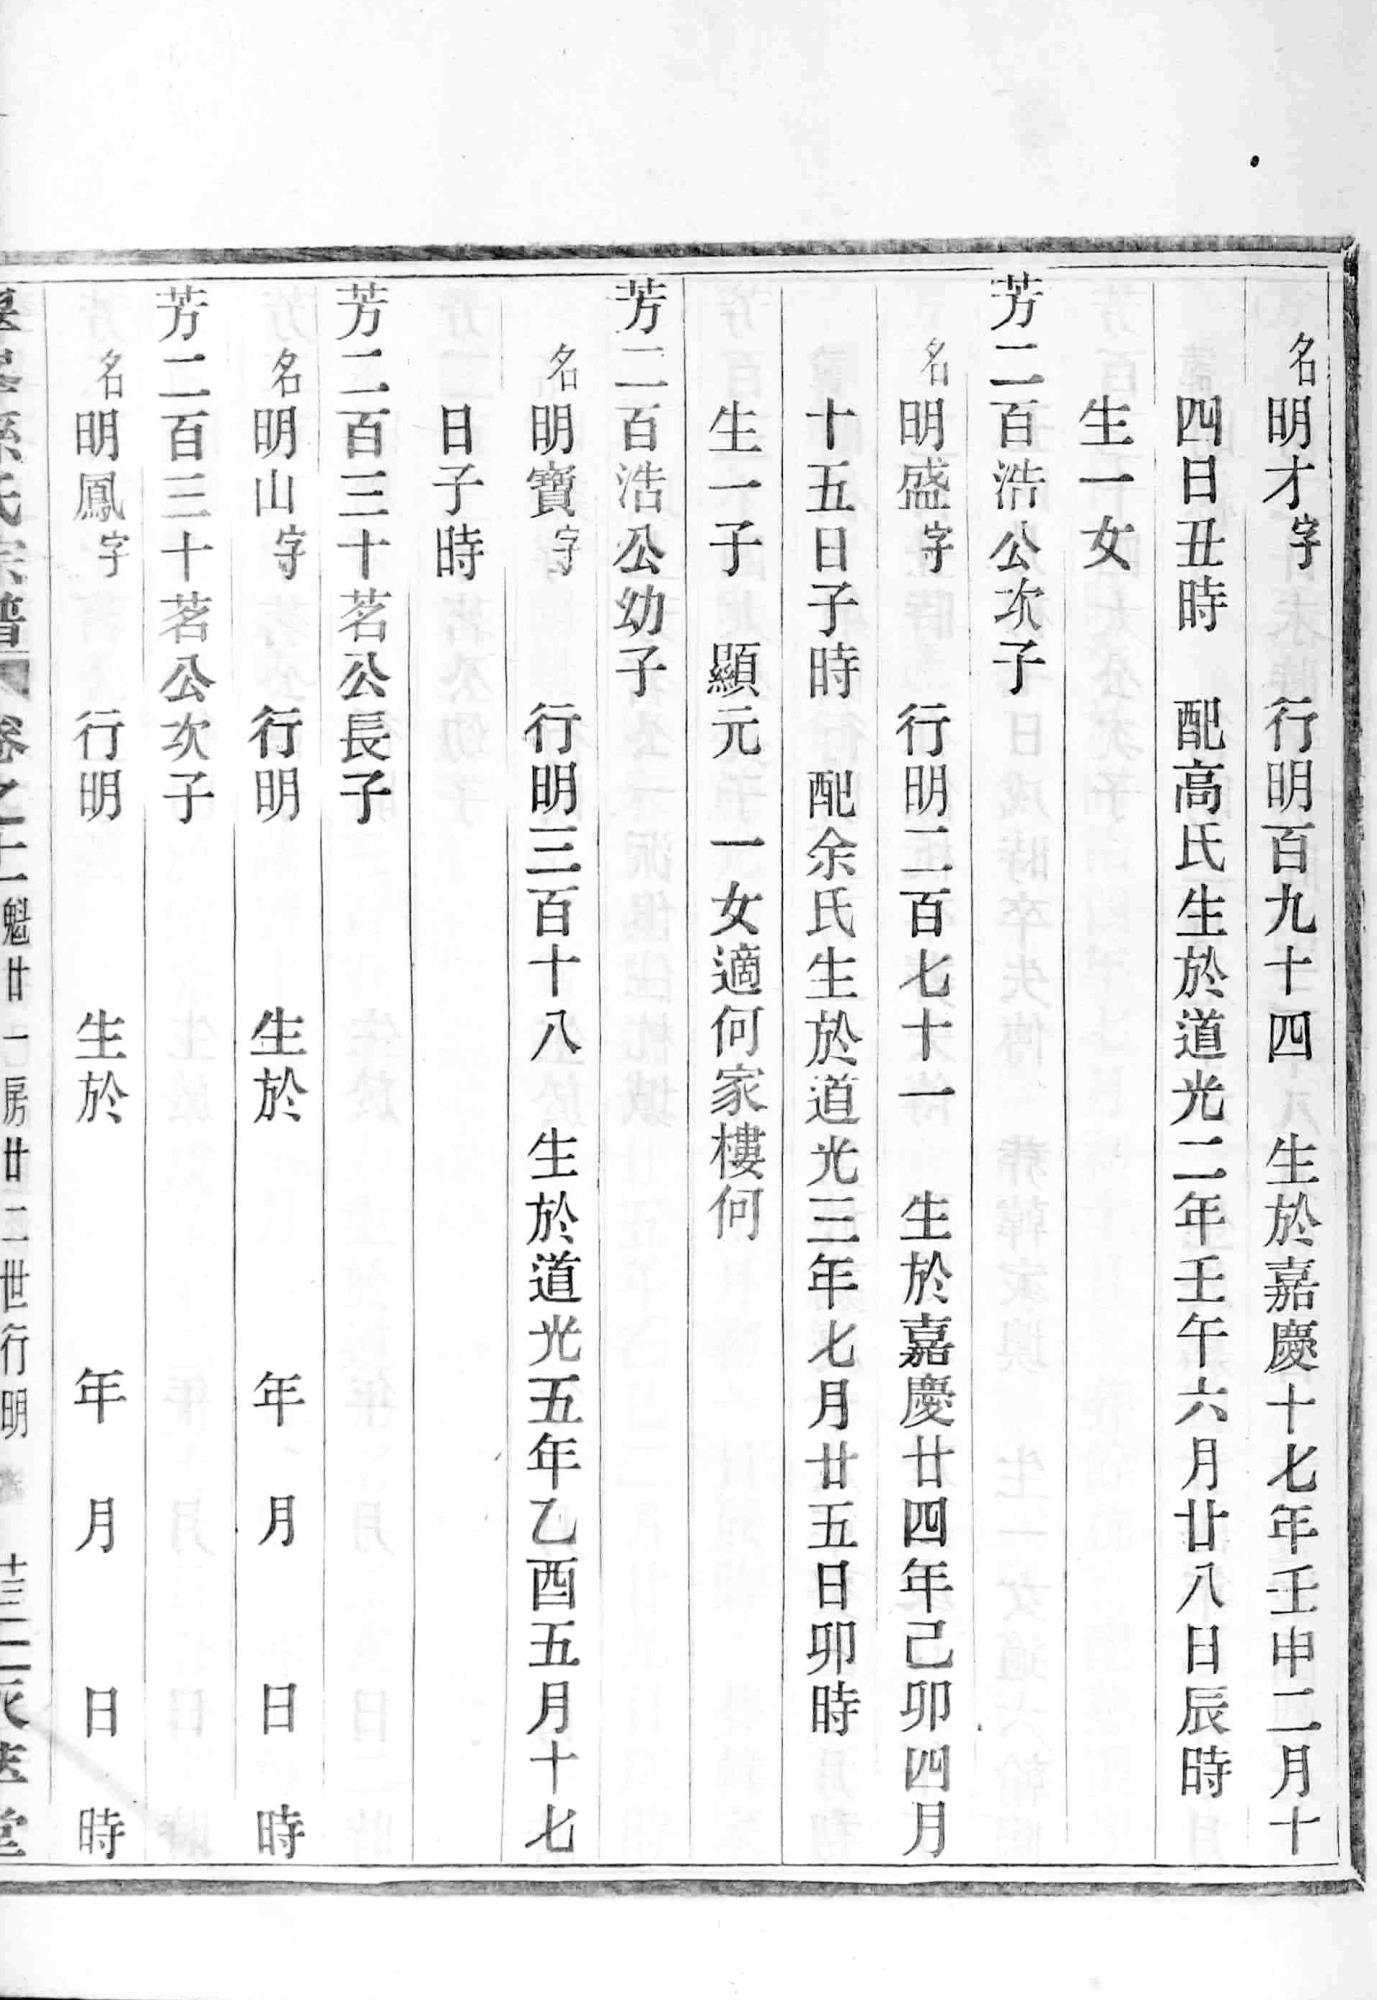 名明才字　行明百九十四　生於嘉慶十七年壬申二月十
四日丑時　配高氏生於道光二年壬午六月廿八日辰時
生一女
芳二百浩公次子
名明盛字　行明二百七十一　生於嘉慶廿四年己卯四月
十五日子時　配余氏生於道光三年七月廿五日卯時
生一子　顯元　一女適何家樓何
芳二百浩公幼子
名明寶字　行明三百十八　生於道光五年乙酉五月十七
日子時
芳二百三十茗公長子
名明山字　行明　生於　年　月　日　時
芳二百三十茗公次子
名明鳳字　行明　生於　年　月　日　時
孫氏宗譜　卷之十一　魁廿一房廿二世行明　堂